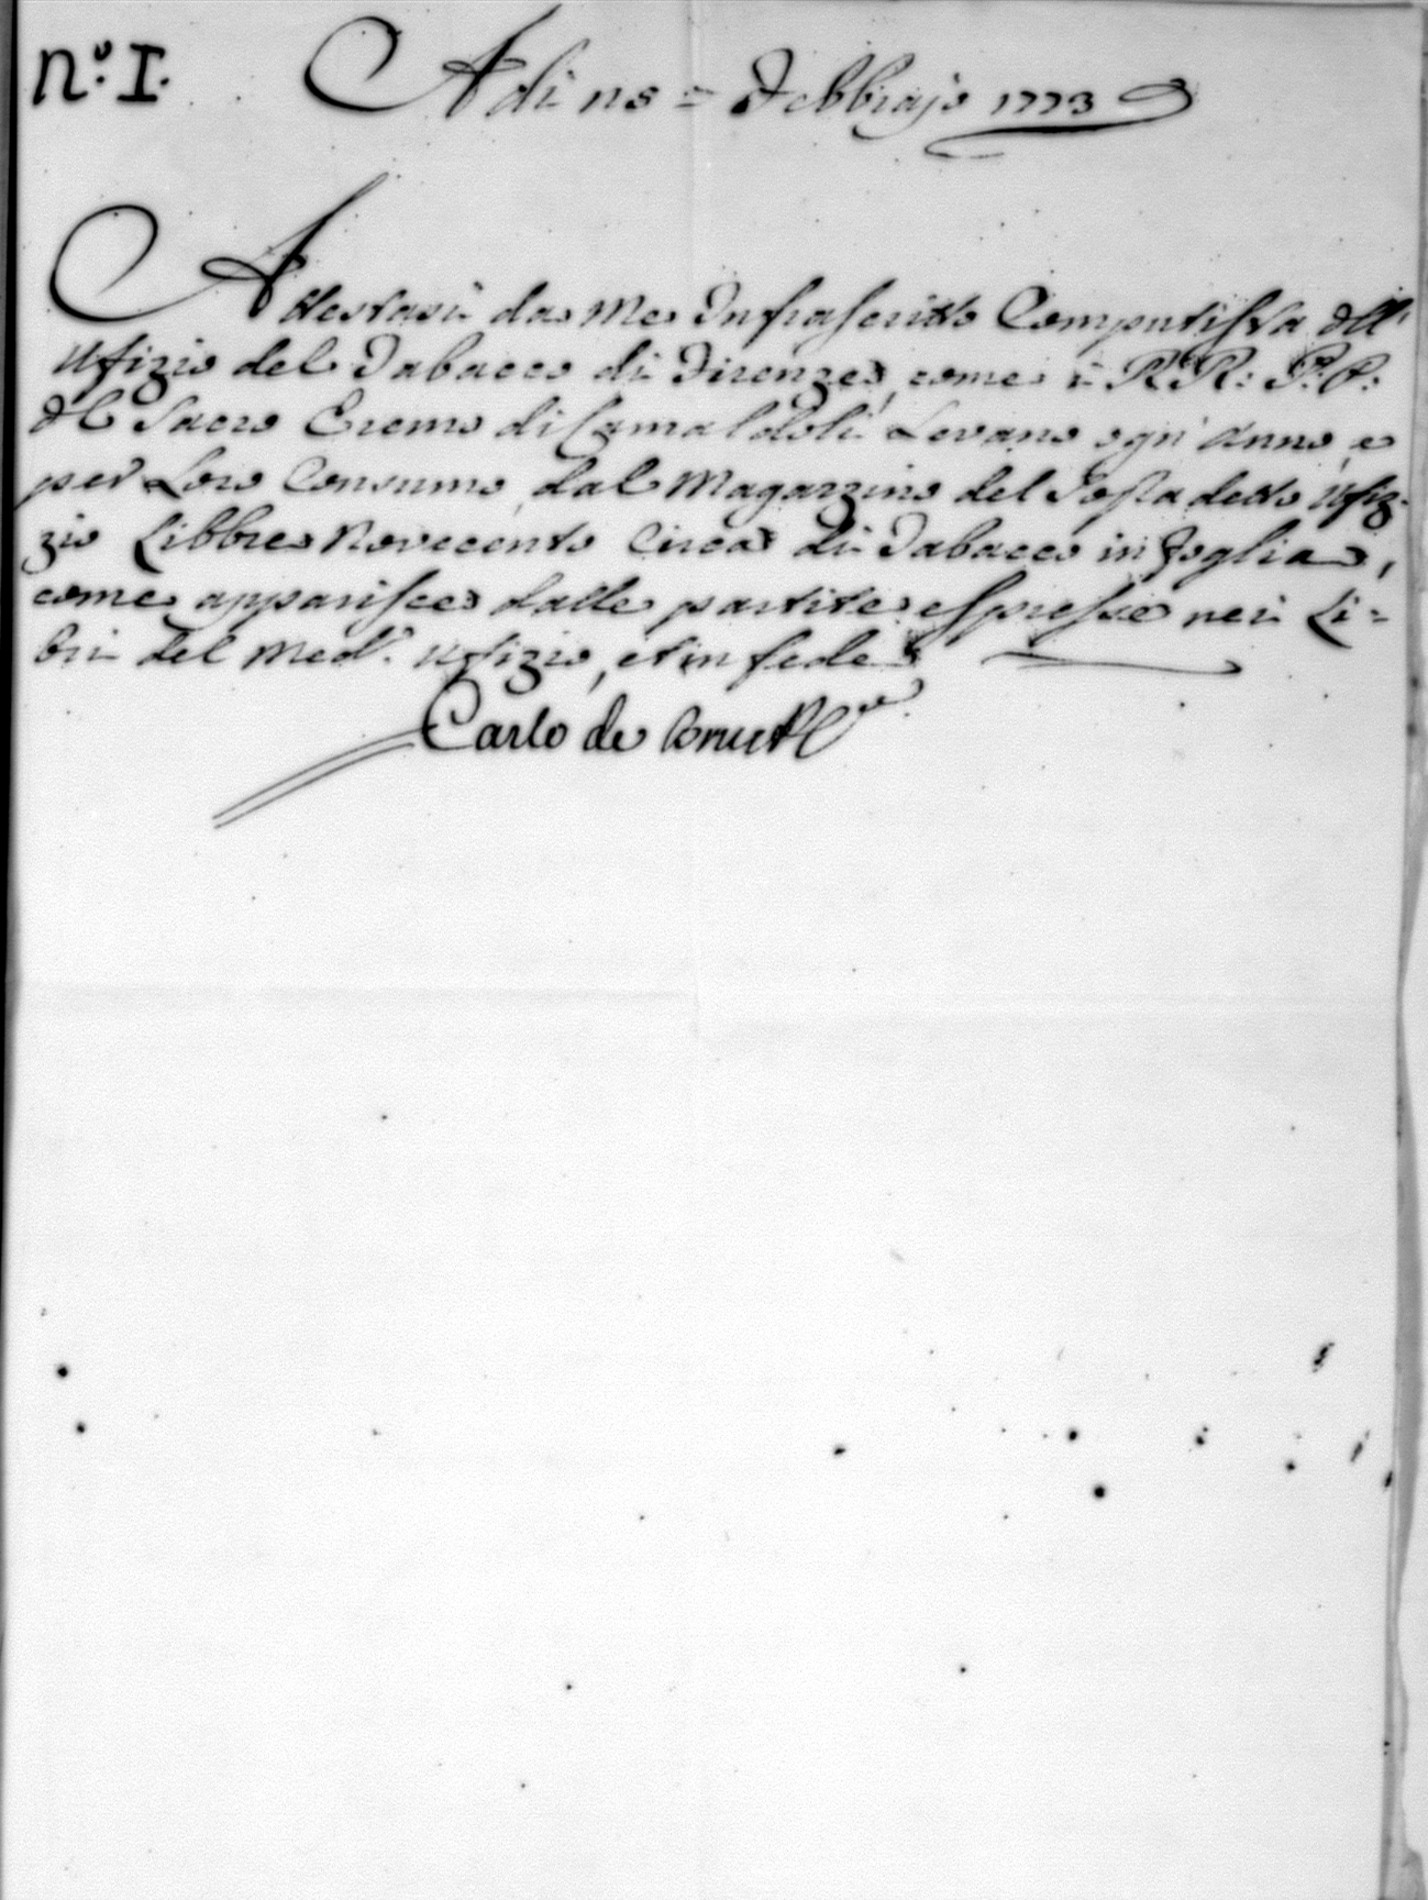 N.º I.
Adi = Febbrajo 1773
Attestasi da me Infrascritto Computista dell'
Ufizio del Tabacco di Firenze, come i RR: P.P:
del Sacro Eremo di Camaldoli Levano ogn' anno, e
per Loro Consumo, dal Magazzino del Posta detto Ufiz-
zio Libbre Novecento Circa di Tabacco in foglia,
come apparisce dalle partite espresse nei Li=
bri del Med.º Ufizio, et in fede
Carlo de